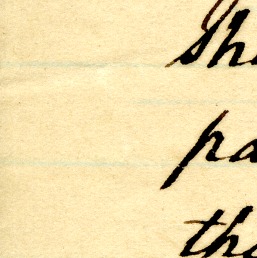 Sh
pa
tha